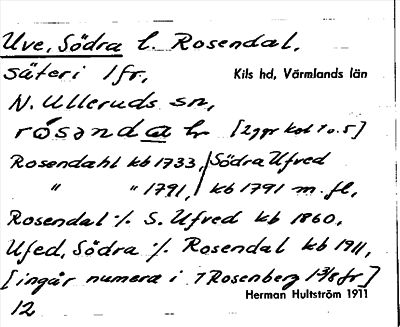 Uve, Södra l. Rosendal,
säteri 1 fr, Kils hd, Värmlands län
N. Ulleruds sn,
rósənda l [2 ggr kol 1 o. 5]
Rosendahl kb 1733, / Södra Ufved
" " 1791, / kb 1791 m. fl,
Rosendal ·/. S. Ufved kb 1860,
Ufed, Södra ·/. Rosendal kb 1911,
[ingår numera i 1 Rosenberg 1 3/8 fr]
Herman Hultström 1911
12